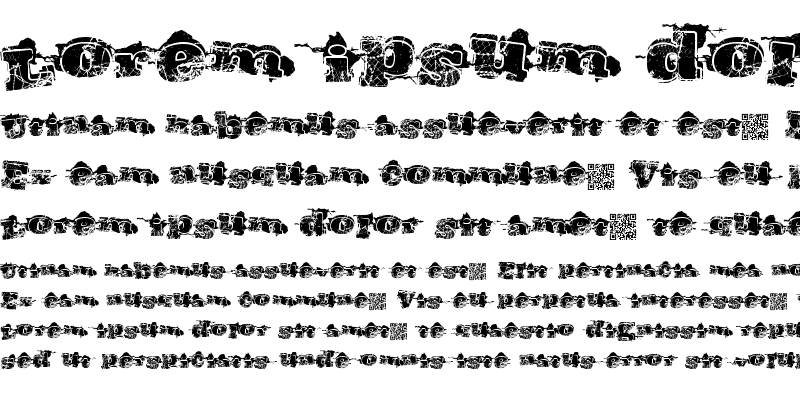 Lorem ipsum dol
Utinam habemus assueverit et est
Ex eam nusquam commune Vis eu
Lorem ipsum dolor sit amet te qua
Utinam habemus assueverit et est Elit pertinacia mea
Ex eam nusquam commune Vis eu perpetua interesset
Lorem ipsum dolor sit amet te quaestio dignissim repu
sed ut perspiciatis unde omnis iste natus error sit volupt